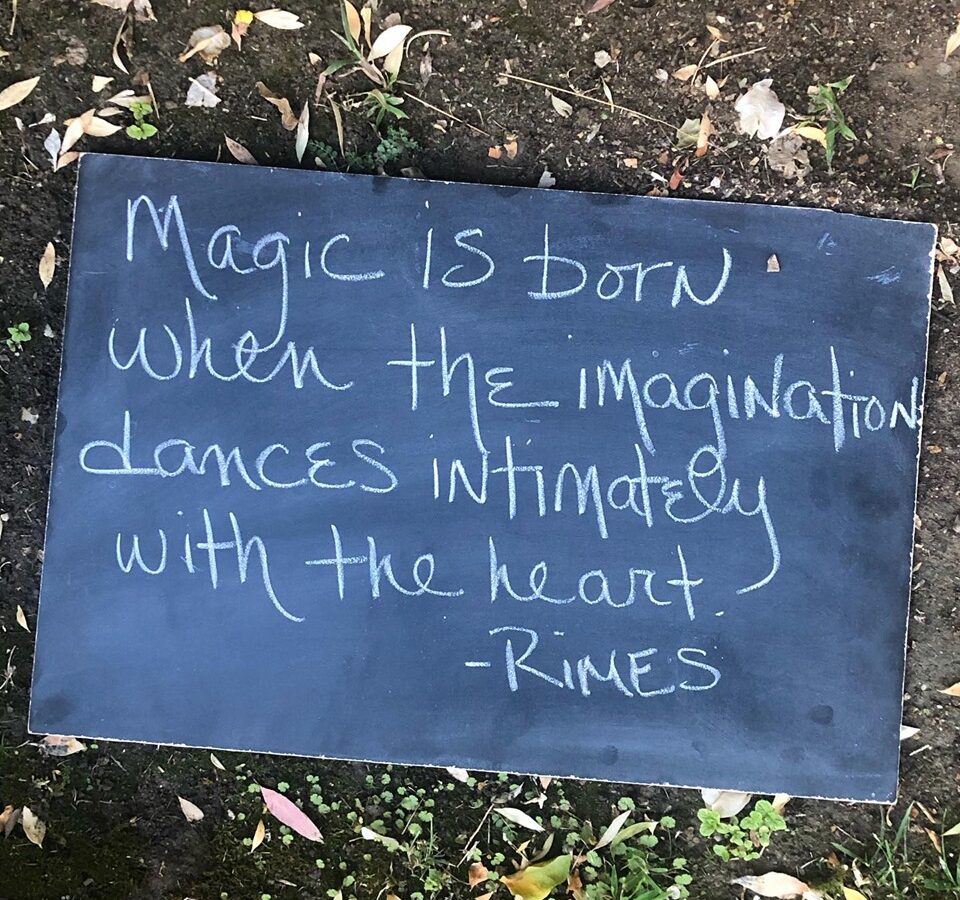 Magic is born
when the imagination
dances intimately
with the heart.
-Rimes